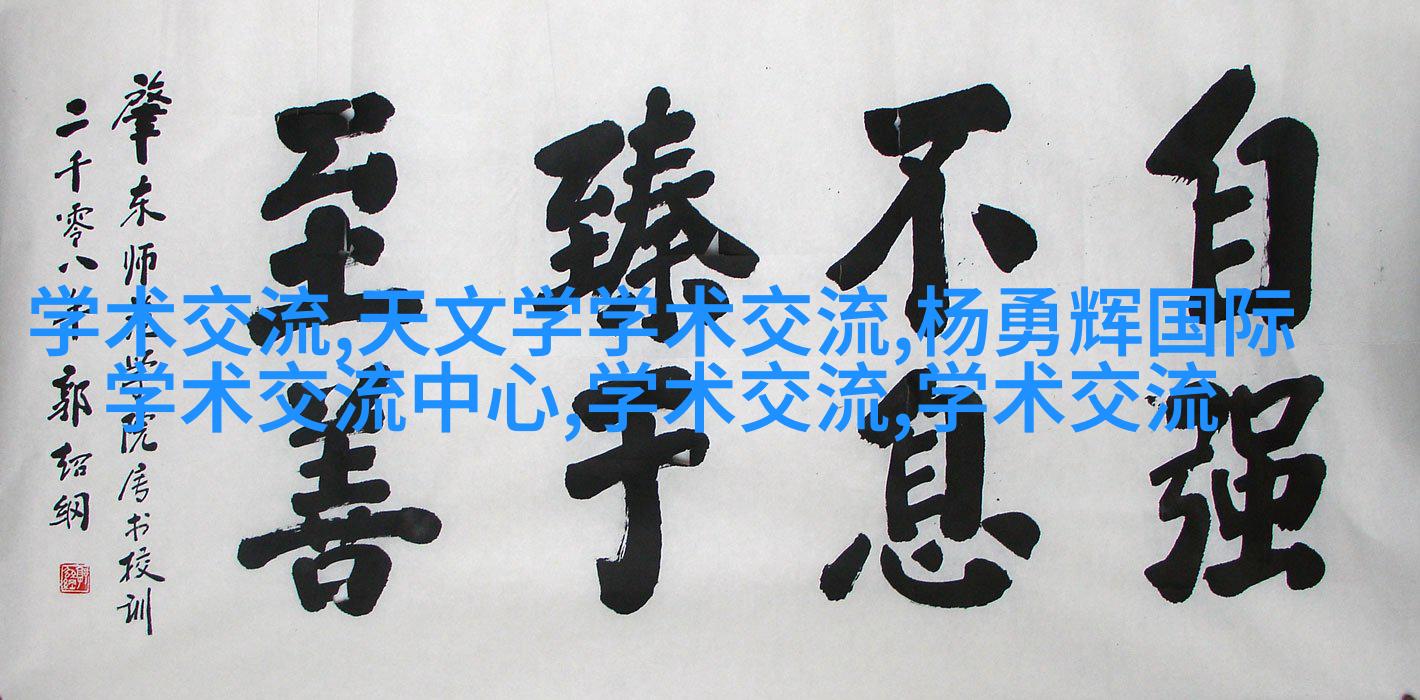 自强
不息
臻于
至善
肇东师学院属书校训
二千零八年 郭绍纲
学术交流,天文学学术交流,杨勇辉国际
学术交流中心,学术交流,学术交流